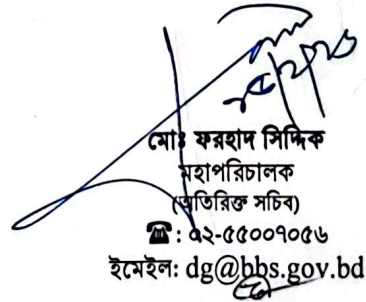 মোঃ ফরহাদ সিদ্দিক
মহাপরিচালক
(অতিরিক্ত সচিব)
☎: ৫২-৫৫০০৭০৫৬
ইমেইল: dg@bbs.gov.bd